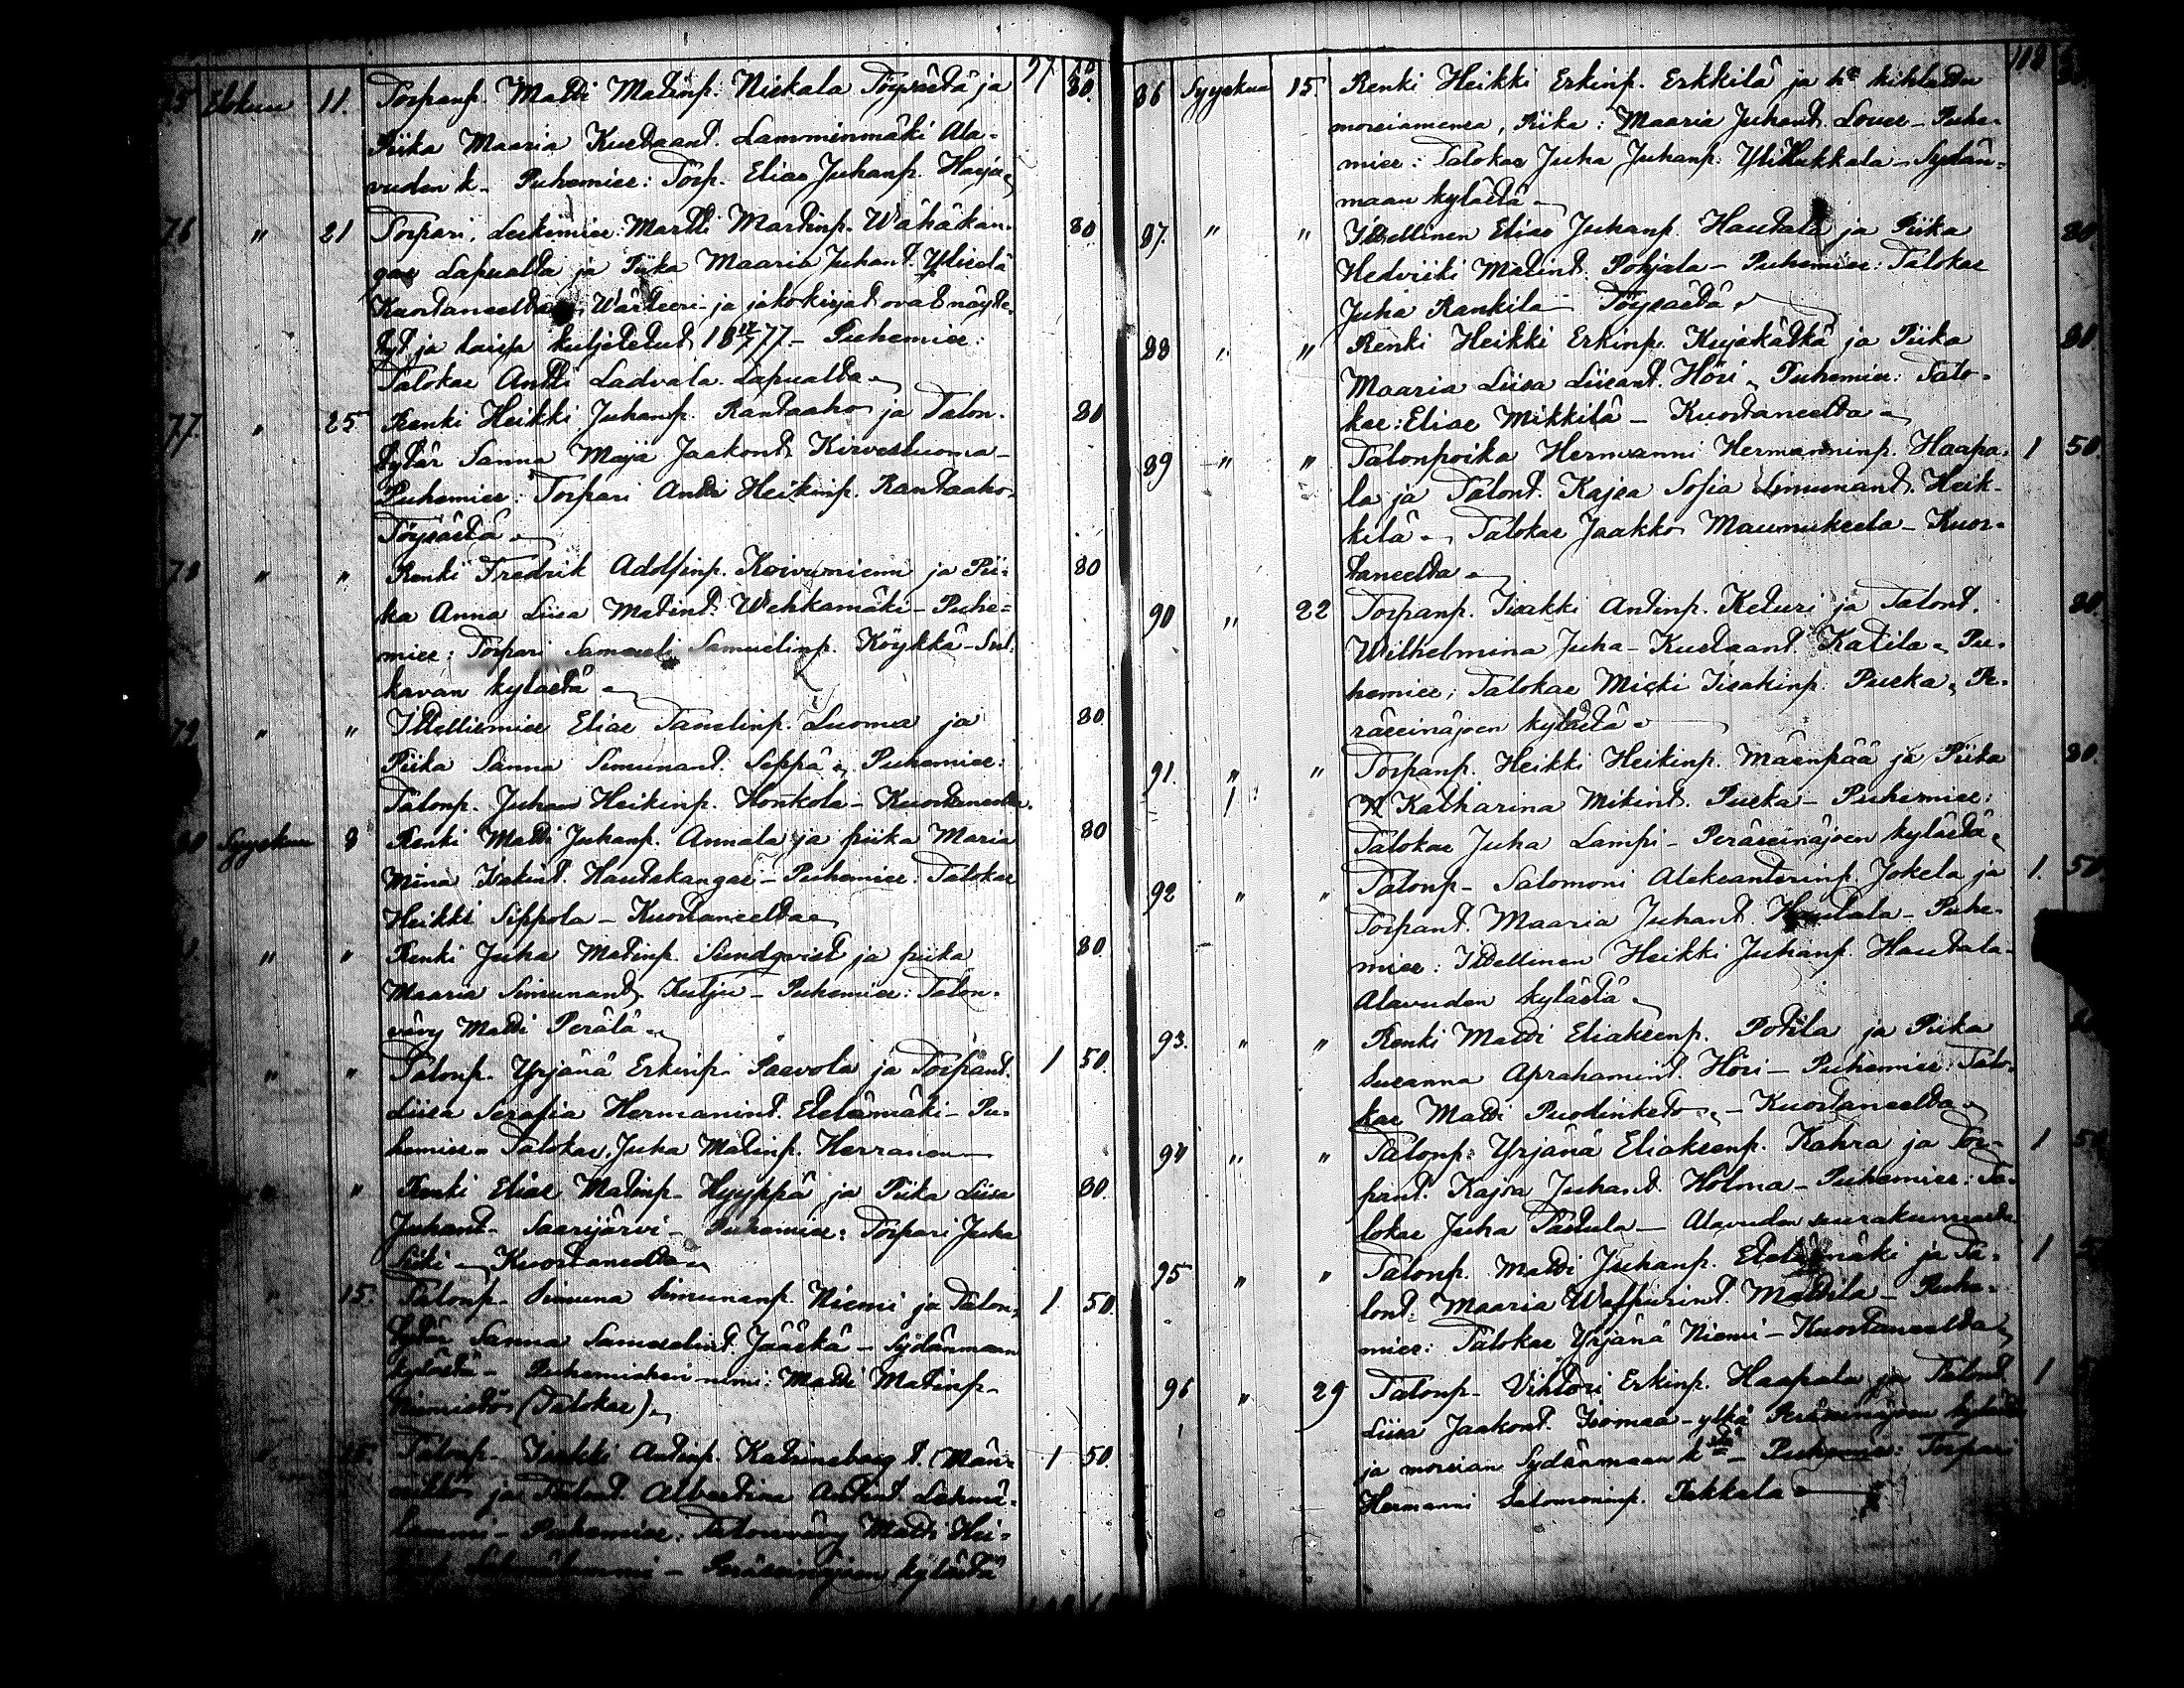 97 80
75 Elokuu 11. Torpanp. Matti Matinp. Niskala Töysästä ja 80.
Piika Maaria Kustaant. Lamminmäki Ala-
vuden k. Puhemies: Torp. Elias Juhanp. Harja
76 " 21 Torpari, Leskimies: Martti Martinp. Wähäkan- 80
gas Lapualta ja Piika Maaria Juhant. Yliselä
Kuortaneelta Wärteeri- ja jakokirjat ovat näyte-
tyt ja kuljetetut 18 77 - Puhemies:
Talokas Antti Ladvala Lapualta
77. " 25 Renki Heikki Juhanp. Rantaaho ja Talon- 80
tytär Sanna Maja Jaakont. Kirvesluoma -
Puhemies: Torpari Antti Heikinp. Rantaaho
Töysästä
78 " " Renki Fredrik Adolfinp. Koivuniemi ja Pii- 80
ka Anna Liisa Matint. Wehkamäki - Puhe-
mies: Torpari Samueli Samuelinp. Köykkä - Sul-
kavan kylästä
79 " " Itsellismies Elias Tanelinp. Luoma ja 80.
Piika Sanna Simunant. Seppä Puhemies:
Talonp. Juhan Heikinp. Honkola - Kuortaneelta.
80 Syyskuu 8 Renki Matti Juhanp. Annala ja piika Maria 80
Mina Iisakint. Hautakangas - Puhemies: Talokas
Heikki Sippola - Kuortaneelta
" " Renki Juha Matinp. Sundqvist ja piika 80.
Maaria Simunant. Kulju - Puhemies: Talon-
vävy Matti Perälä
" " Talonp. Yrjänä Erkinp. Paavola ja Torpant. 1 50.
Liisa Serafia Hermanint. Etelämäki - Pu-
hemies Talokas Juha Matinp. Herranen
" " Renki Elias Matinp. Hyyppä ja Piika Liisa 80.
Juhant. Saarijärvi - Puhemies: Torpari Juha
Kuortaneelta
" 15. Talonp. Simuna Simunanp. Niemi ja Talon- 1 50.
tytär Sanna Samuelint. Jääskä - Sydänmaan
kylästä - Puhemiehen nimi: Matti Matinp.
Niemistö (Talokas)
" 15. Talonp. Iisakki Antinp. Katrineberg t. Män-
ja Talont. Albertina Antint. Lehmä- 1 50.
lammi - Puhemies: Talonvävy Matti Hei-
Lehmälammi - Peräseinäjoen kylästä
118
86 Syyskuu 15. Renki Heikki Erkinp. Erkkilä ja hän kihlattu
morsiamensa, Piika: Maaria Juhant. Loues - Puhe-
mies: Talokas Juha Juhanp. YliHukkala - Sydän-
maan kylästä
87. " " Itsellinen Elias Juhanp. Hautala ja Piika 80.
Hedviiki Matint. Pohjala - Puhemies: Talokas
Juha Rankila - Töysästä
88 " " Renki Heikki Erkinp. Kujakätkä ja Piika 80
Maaria Liisa Liisant. Höri Puhemies: Talo-
kas: Elias Mikkilä - Kuortaneelta
89 " " Talonpoika Hermanni Hermanninp. Haapa- 1 50.
la ja Talont. Kajsa Sofia Simunant. Heik-
kilä Talokas Jaakko Maunuksela - Kuor-
taneelta
90 " 22 Torpanp. Iisakki Antinp. Keturi ja Talont. 80.
Wilhelmina Juha-Kustaant. Katila Pu-
hemies: Talokas Mikki Iisakinp. Puska Pe-
räseinäjoen kylästä
91. " " Torpanp. Heikki Heikinp. Mäenpää ja Piika 80.
Katharina Mikint. Puska - Puhemies:
Talokas Juha Lampi - Peräseinäjoen kylästä
92 " " Talonp. Salomoni Aleksanterinp. Jokela ja 1. 50
Torpant. Maaria Juhant. Hautala - Puhe-
mies: Itsellinen Heikki Juhanp. Hautala
Alavuden kylästä
93. " " Renki Matti Eliaksenp. Potila ja Piika
Susanna Aprahamint. Höri - Puhemies: Talo-
kas Matti Puodinketo - Kuortaneelta
94 " " Talonp. Yrjänä Eliaksenp. Kahra ja Tor- 1 50
pant. Kajsa Juhant. Holma - Puhemies: Ta-
lokas Juha Tastula - Alavuden seurakunnasta
95 " " Talonp. Matti Juhanp. Etelämäki ja Ta- 1 5
lont. Maaria Walpurint. Mattila - Puhe-
mies: Talokas Yrjänä Niemi - Kuortaneelta
96 " 29 Talonp. Vihtori Erkinp. Haapala ja Talont. 1
Liisa Jaakont. Isomaa - ylkä Peräseinäjoen kylästä
ja morsian Sydänmaan kstä - Puhemies: Torpari
Hermanni Salomoninp. Takkala